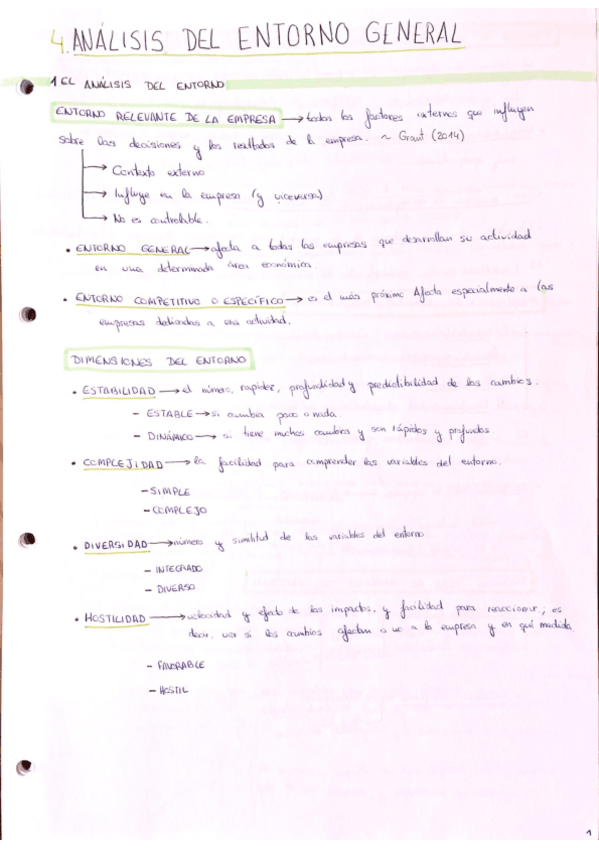 4. ANÁLISIS DEL ENTORNO GENERAL
1 EL ANÁLISIS DEL ENTORNO
ENTORNO RELEVANTE DE LA EMPRESA → todos los factores externos que influyen
sobre las decisiones y los resultados de la empresa. ~ Grant (2014)
→ Contexto externo
→ Influye en la empresa (y viceversa)
→ No es controlable.
• ENTORNO GENERAL → afecta a todas las empresas que desarrollan su actividad
en una determinada área económica
• ENTORNO COMPETITIVO O ESPECÍFICO → es el más próximo. Afecta especialmente a las
empresas dedicadas a una actividad.
DIMENSIONES DEL ENTORNO
• ESTABILIDAD → el número, rapidez, profundidad y predictibilidad de los cambios.
- ESTABLE → si cambia poco o nada.
- DINÁMICO → si tiene muchos cambios y son rápidos y profundos
• COMPLEJIDAD → la facilidad para comprender las variables del entorno.
- SIMPLE
- COMPLEJO
• DIVERSIDAD → número y similitud de las variables del entorno
- INTEGRADO
- DIVERSO
• HOSTILIDAD → velocidad y efecto de los impactos, y facilidad para reaccionar, es
decir, ver si los cambios afectan o no a la empresa y en qué medida
- FAVORABLE
- HOSTIL
1